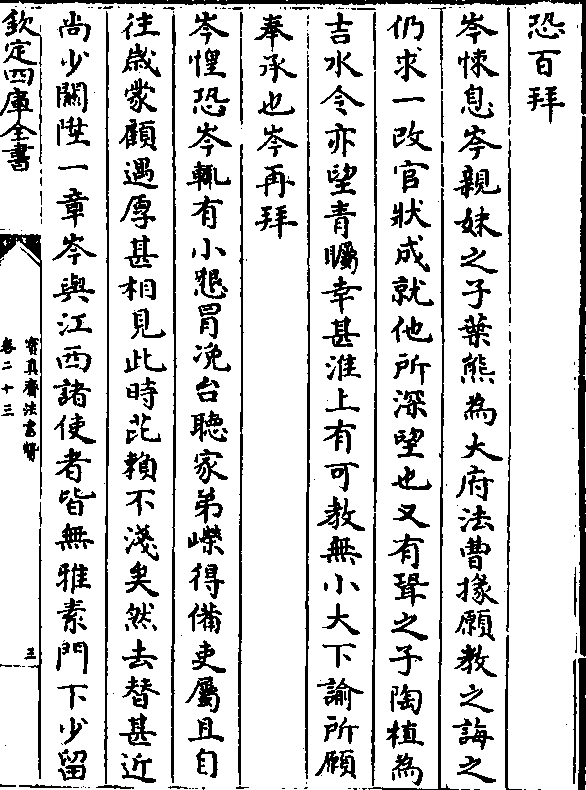 恐百拜
岑悚息岑親妹之子葉熊為大府法曹掾願教之誨之
仍求一改官狀成就他所深望也又有聲之子陶植為
吉水令亦望青矚幸甚淮上有可教無小大下諭所願
奉承也岑再拜
岑惶恐岑輒有小懇冒浼台聽家弟嶸得備吏屬且自
往歲蒙顧遇厚甚相見此時芘賴不淺矣然去替甚近
尚少關陞一章岑與江西諸使者皆無雅素門下少留
欽定四庫全書
寶真齋法書贊
卷二十三
三